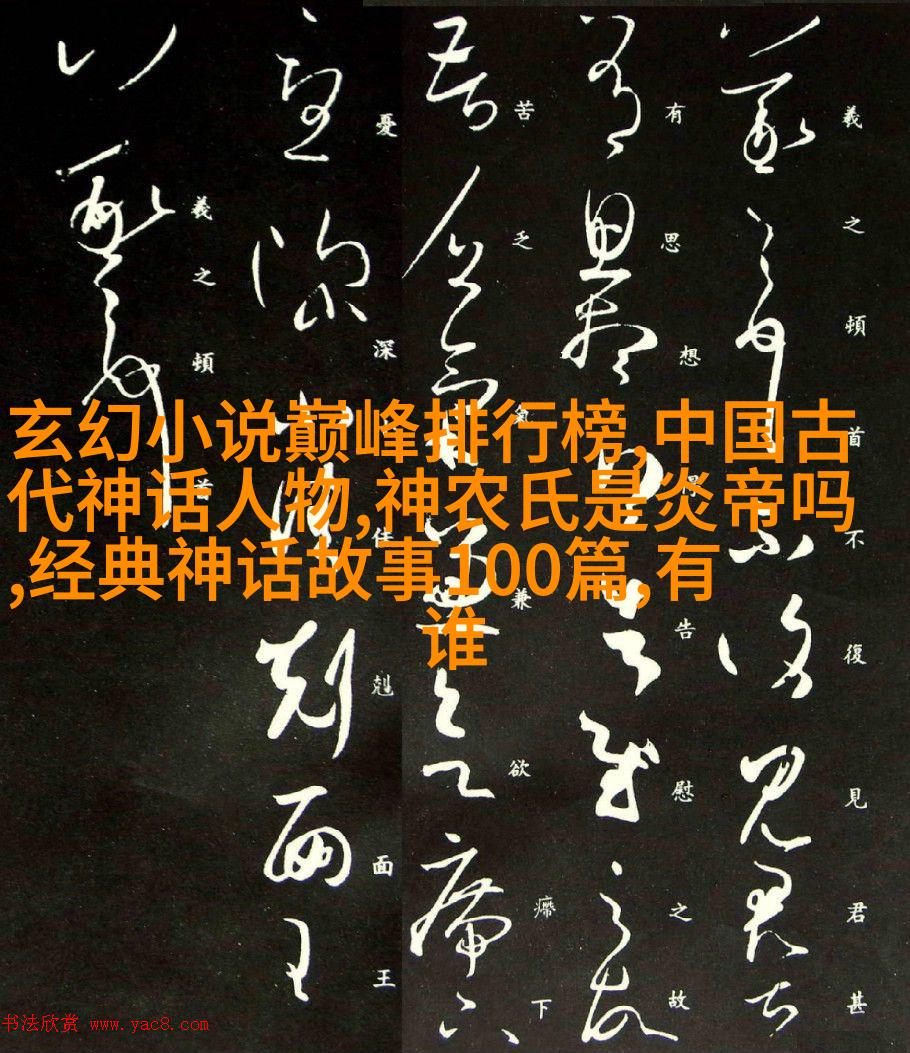 玄幻小说巅峰排行榜,中国古
代神话人物,神农氏是炎帝吗
,经典神话故事100篇,有
谁
羲之頓首不復見君甚
有思想得告慰之故
苦乏氣兼欲㿃下
憂深佳剋面王
羲之頓首
书法欣赏 www.yac8.com